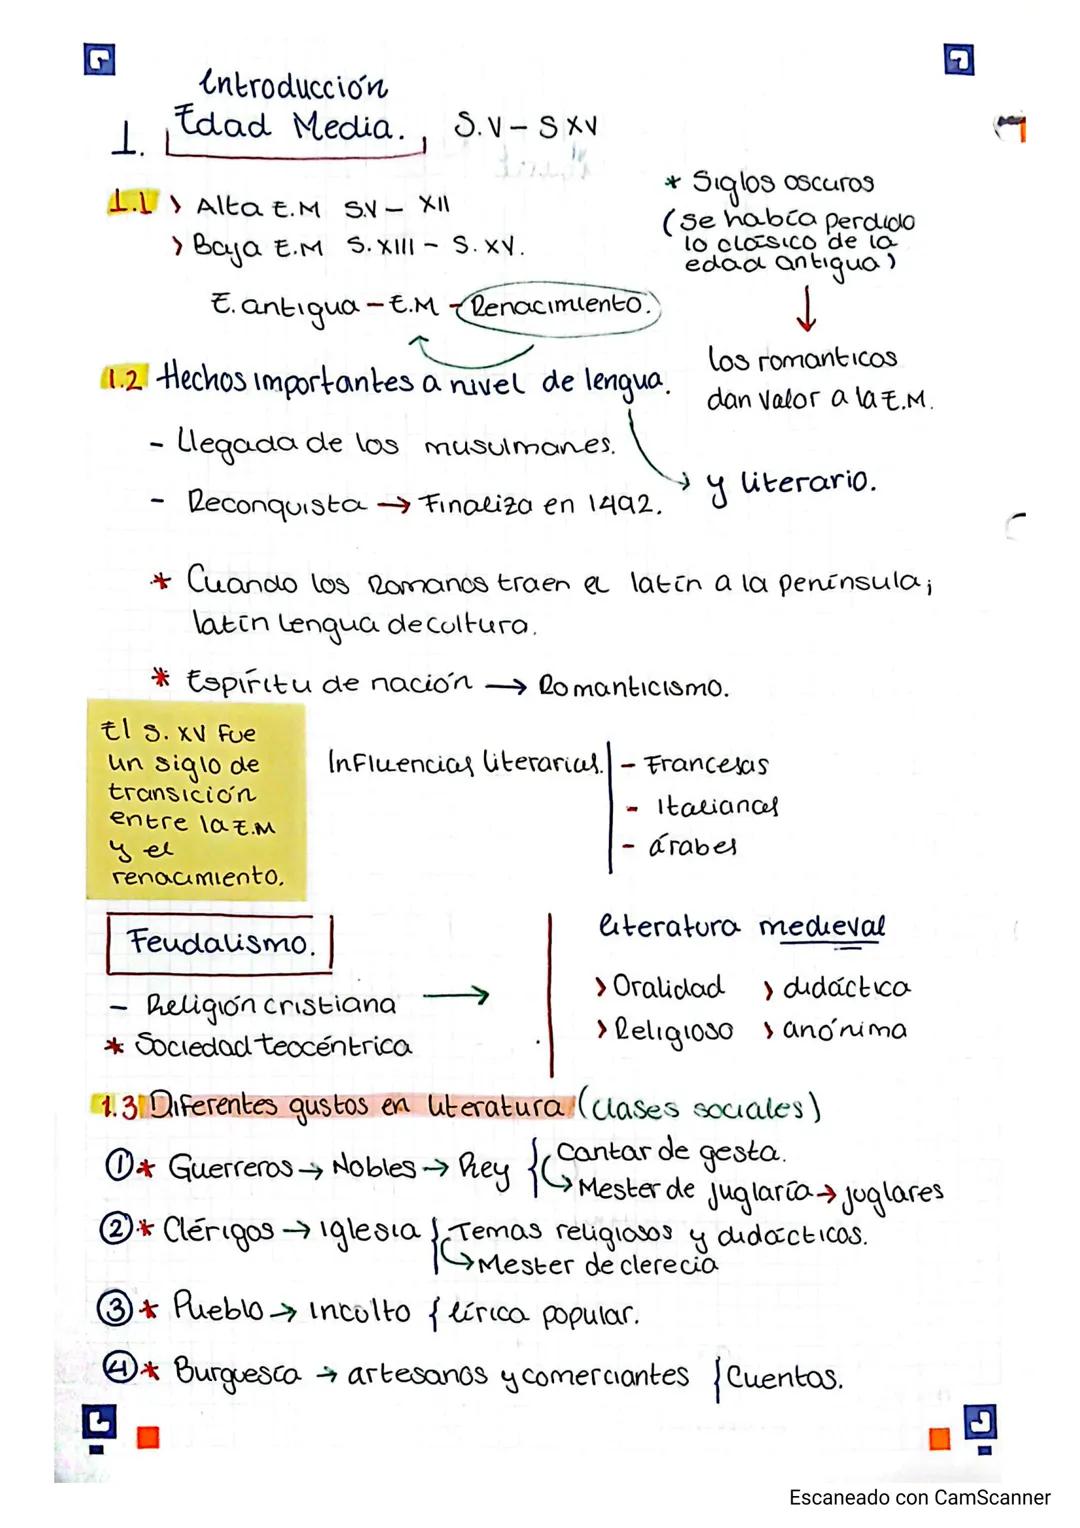 Introducción
1. Edad Media. S.V - S XV
1.1 > Alta E.M S.V - XII
> Baja E.M S. XIII - S. XV.
* Siglos oscuros
(se había perdido
lo clásico de la
edad antigua)
E. antigua - E.M - Renacimiento.
los romanticos
dan valor a la E.M.
1.2 Hechos importantes a nivel de lengua.
y literario.
- Llegada de los musulmanes.
- Reconquista → Finaliza en 1492.
* Cuando los Romanos traen el latín a la península;
latín lengua de cultura.
* Espíritu de nación → Romanticismo.
El S. XV fue
un siglo de
transición
entre la E.M
y el
renacimiento.
Influencias literarias. - Francesas
- Italianas
- árabes
Feudalismo.
- Religión cristiana →
* Sociedad teocéntrica
literatura medieval
> Oralidad > didáctica
> Religioso > anónima
1.3 Diferentes gustos en literatura (clases sociales)
① * Guerreros → Nobles → Rey { Cantar de gesta.
→ Mester de juglaría → juglares
② * Clérigos → iglesia { Temas religiosos y didácticos.
→ Mester de clerecia
③ * Pueblo → inculto { lírica popular.
④ * Burguesía → artesanos y comerciantes { Cuentos.
Escaneado con CamScanner